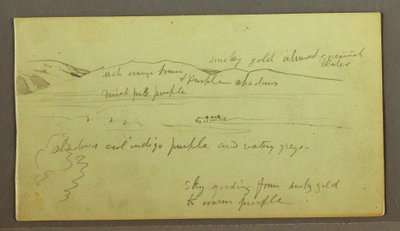 smoky gold almost greenish
slates
rich orange brown & purple shadows
mist pale purple
shadows cool indigo purple and watery greys.
Sky grading from smoky gold
to warm purple